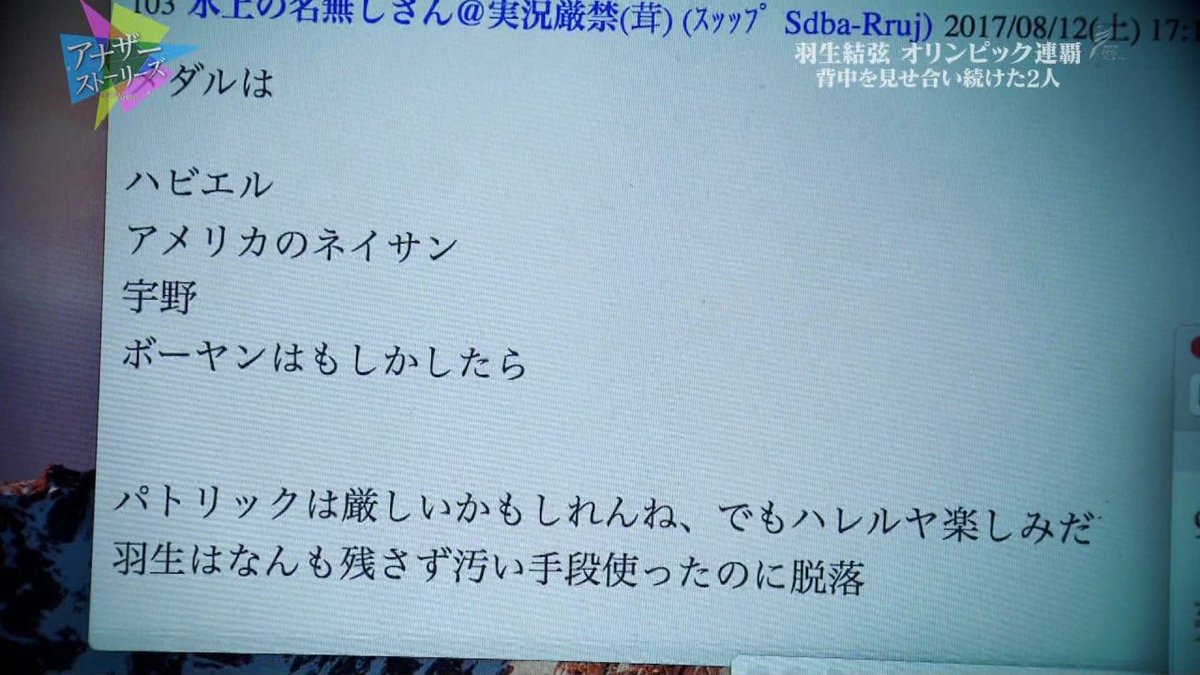 103 氷上の名無しさん@実況厳禁(茸) (ｽｯｯﾌﾟ Sdba-Rruj) 2017/08/12(土) 17:1
アナザー
ストーリーズ
羽生結弦 オリンピック連覇
背中を見せ合い続けた2人
メダルは
ハビエル
アメリカのネイサン
宇野
ボーヤンはもしかしたら
パトリックは厳しいかもしれんね、でもハレルヤ楽しみだ
羽生はなんも残さず汚い手段使ったのに脱落